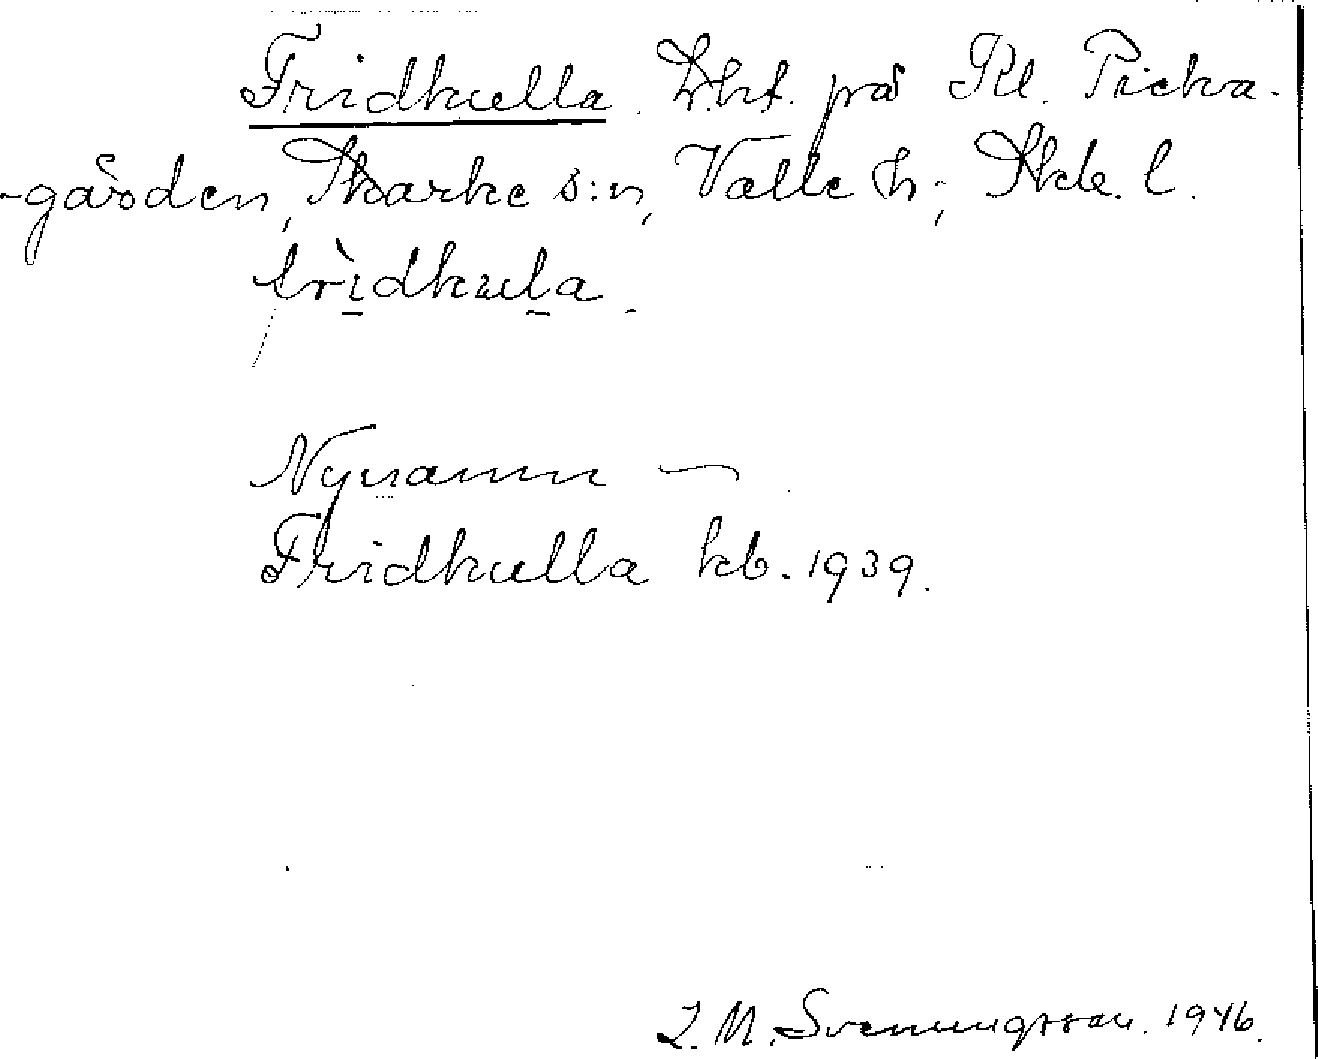 Fridkulla. L.ht. på Kl. Picka-
-gården, Skarke s:n, Valle h; Skb. l.
frìdkula.
Nynamn —
Fridkulla kb. 1939.
I. M. Svenungsson. 1946.